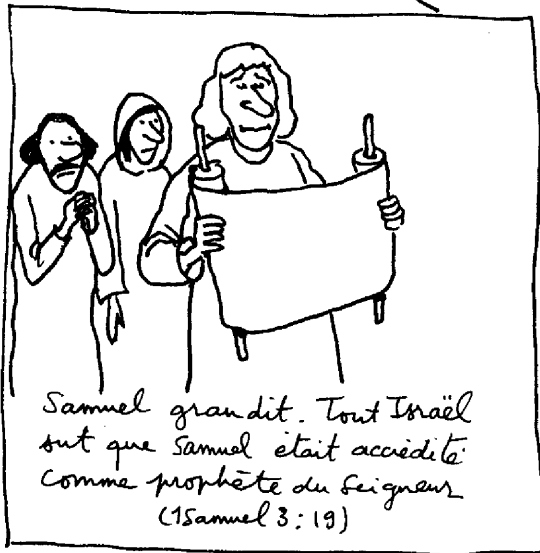 Samuel grandit. Tout Israël
sut que Samuel était accrédité
comme prophète du Seigneur
(1Samuel 3:19)